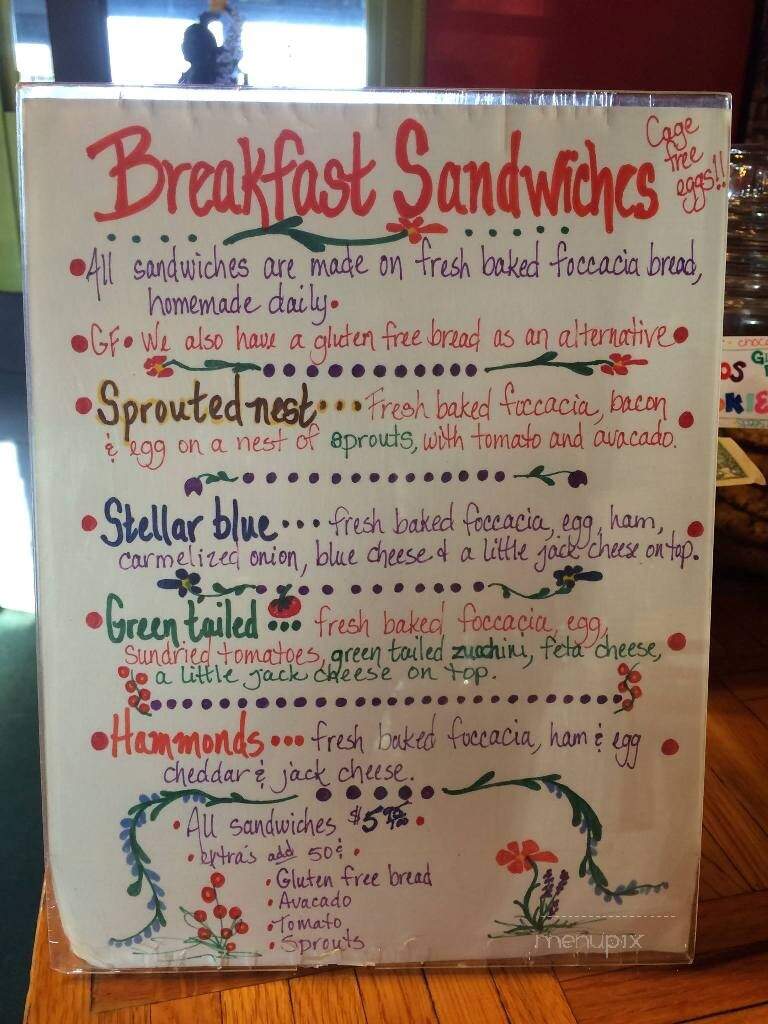 Breakfast Sandwiches
Cage
free
eggs!!
All sandwiches are made on fresh baked foccacia bread,
homemade daily.
GF. We also have a gluten free bread as an alternative
Sprouted nest... Fresh baked foccacia, bacon
& egg on a nest of sprouts, with tomato and avacado.
Stellar blue... fresh baked foccacia, egg, ham,
carmelized onion, blue cheese & a little jack cheese on top.
Green tailed... fresh baked foccacia, egg,
sundried tomatoes, green tailed zucchini, feta cheese,
a little jack cheese on top.
Hammonds... fresh baked foccacia, ham & egg
cheddar & jack cheese.
All sandwiches $5
extra's add 50¢
Gluten free bread
Avacado
Tomato
Sprouts
menupix